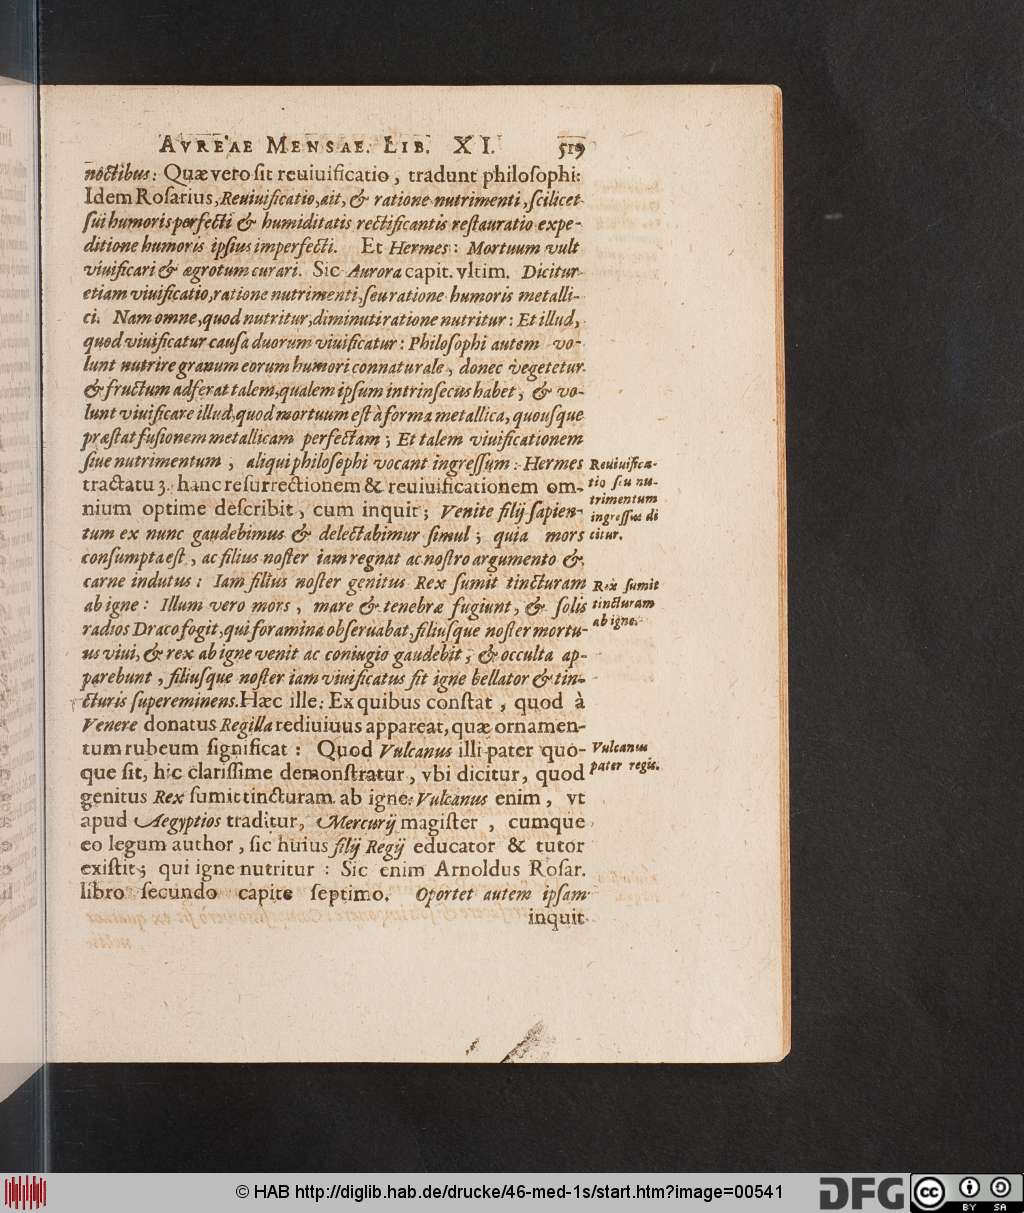 AVREAE MENSAE. LIB. XI. 519
noctibus: Quæ vero sit reuiuificatio, tradunt philosophi:
Idem Rosarius, Reuiuificatio, ait, & ratione nutrimenti, scilicet
sui humoris perfecti & humiditatis rectificantis restauratio expe-
ditione humoris ipsius imperfecti. Et Hermes: Mortuum vult
viuificari & ægrotum curari. Sic Aurora capit. vltim. Dicitur
etiam viuificatio, ratione nutrimenti, seu ratione humoris metalli-
ci. Nam omne, quod nutritur, diminuti ratione nutritur: Et illud,
quod viuificatur causa duorum viuificatur: Philosophi autem vo-
lunt nutrire granum eorum humori connaturale, donec vegetetur
& fructum adferat talem, qualem ipsum intrinsecus habet, & vo-
lunt viuificare illud, quod mortuum est à forma metallica, quousque
præstat fusionem metallicam perfectam; Et talem viuificationem
siue nutrimentum, aliqui philosophi vocant ingressum: Hermes
tractatu 3. hanc resurrectionem & reuiuificationem om-
nium optime describit, cum inquit; Venite filij sapien-
tum ex nunc gaudebimus & delectabimur simul; quia mors
consumpta est, ac filius noster iam regnat ac nostro argumento &
carne indutus: Iam filius noster genitus Rex sumit tincturam
ab igne: Illum vero mors, mare & tenebræ fugiunt, & solis
radios Draco fogit, qui foramina obseruabat, filiusque noster mortu-
us viui, & rex ab igne venit ac coniugio gaudebit, & occulta ap-
parebunt, filiusque noster iam viuificatus fit igne bellator & tin-
cturis supereminens. Hæc ille: Ex quibus constat, quod à
Venere donatus Regilla rediuiuus appareat, quæ ornamen-
tum rubeum significat: Quod Vulcanus illi pater quo-
que sit, hic clarissime demonstratur, vbi dicitur, quod
genitus Rex sumit tincturam ab igne: Vulcanus enim, vt
apud Aegyptios traditur, Mercurij magister, cumque
eo legum author, sic huius filij Regij educator & tutor
existit; qui igne nutritur: Sic enim Arnoldus Rosar.
libro secundo capite septimo. Oportet autem ipsam
inquit
Reuiuifica-
tio seu nu-
trimentum
ingressus di
citur.
Rex sumit
tincturam
ab igne.
Vulcanus
pater regis.
© HAB http://diglib.hab.de/drucke/46-med-1s/start.htm?image=00541
DFG
cc BY SA